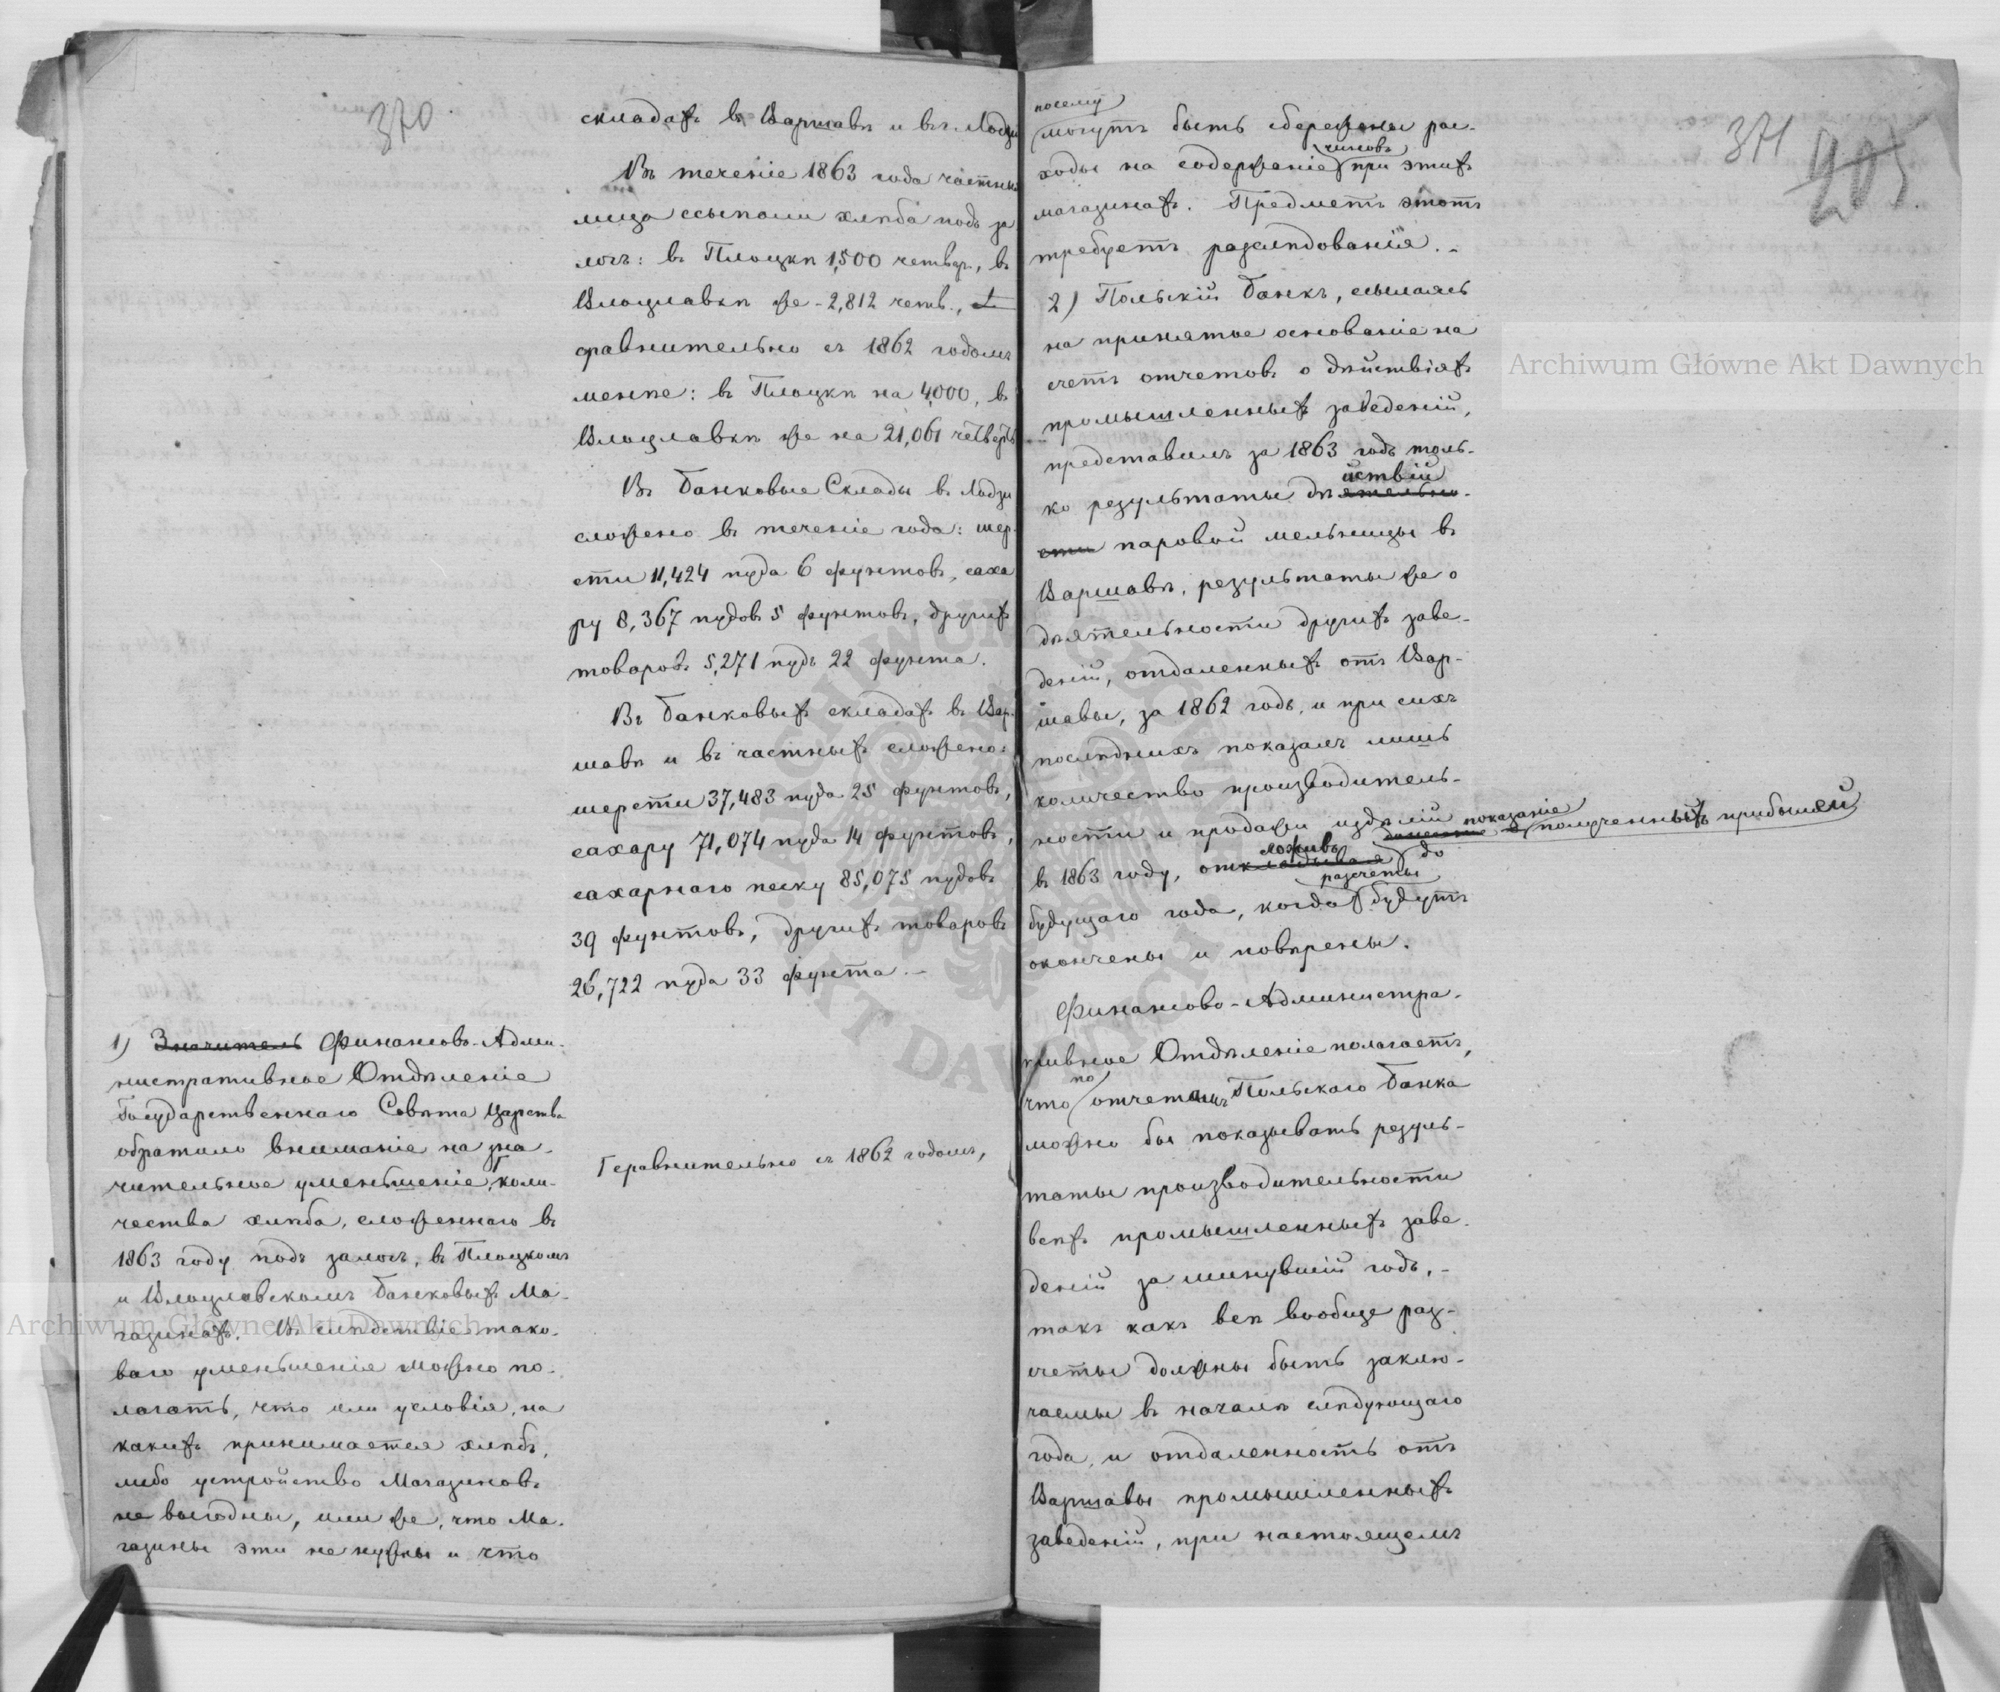 370.
складахъ въ Варшавѣ и въ Лодзи
Въ теченіе 1863 года частныя
лица ссыпали хлѣба подъ за
логъ: въ Плоцкѣ 1,500 четвер., въ
Влоцлавкѣ же - 2,812 четв.,
сравнительно съ 1862 годомъ
менѣе: въ Плоцкѣ на 4,000, въ
Влоцлавкѣ же на 21,061 четверть
Въ Банковые Склады въ Лодзи
сложено въ теченіе года: шер-
сти 11,424 пуда 6 фунтовъ, саха
ру 8,367 пудовъ 5 фунтовъ, другихъ
товаровъ 5,271 пудъ 22 фунта.
Въ Банковыхъ складахъ въ Вар-
шавѣ и въ частныхъ сложено:
шерсти 37,483 пуда 25 фунтовъ,
сахару 71,074 пуда 14 фунтовъ,
сахарнаго песку 85,075 пудовъ
39 фунтовъ, другихъ товаровъ
26,722 пуда 33 фунта. —
1) Значитель Финансово-Адми-
нистративное Отдѣленіе
Государственнаго Совѣта Царства
обратило вниманіе на зна-
чительное уменьшеніе, Г коли-
чества хлѣба, сложеннаго въ
1863 году подъ залогъ, въ Плоцкомъ
и Влоцлавскомъ Банковыхъ Ма-
газинахъ. Въ слѣдствіе тако-
ваго уменьшенія можно по-
лагать, что или условія, на
какихъ принимается хлѣбъ,
либо устройство Магазиновъ
не выгодны, или же, что Ма-
газины эти не нужны и что
Г сравнительно съ 1862 годомъ,
371
205
посему
могутъ быть сбережены рас-
чиновъ
ходы на содержаніе при этихъ
магазинахъ. Предметъ этотъ
требуетъ разслѣдованія. -
2) Польскій Банкъ, ссылаясь
на принятое основаніе на
счетъ отчетовъ о дѣйствіяхъ
промышленныхъ заведеній,
представилъ за 1863 годъ толь-
йствій
ко результаты дѣятельно-
сти паровой мельницы въ
Варшавѣ, результаты же о
дѣятельности другихъ заве-
деній, отдаленныхъ отъ Вар-
шавы, за 1862 годъ, и при сихъ
послѣднихъ показалъ лишь
количество производитель-
ности и продажи издѣлій показаніе
полученныхъ прибылей
ложивъ
въ 1863 году, откладывая до
разсчеты
будущаго года, когда будутъ
окончены и повѣрены.
Финансово-Администра-
тивное Отдѣленіе полагаетъ,
по
что отчетамъ Польскаго Банка
можно бы показывать резуль-
таты производительности
всѣхъ промышленныхъ заве-
деній за минувшій годъ, -
такъ какъ всѣ вообще раз-
счеты должны быть заклю-
чаемы въ началѣ слѣдующаго
года, и отдаленность отъ
Варшавы промышленныхъ
заведеній, при настоящемъ
Archiwum Główne Akt Dawnych
Archiwum Główne Akt Dawnych